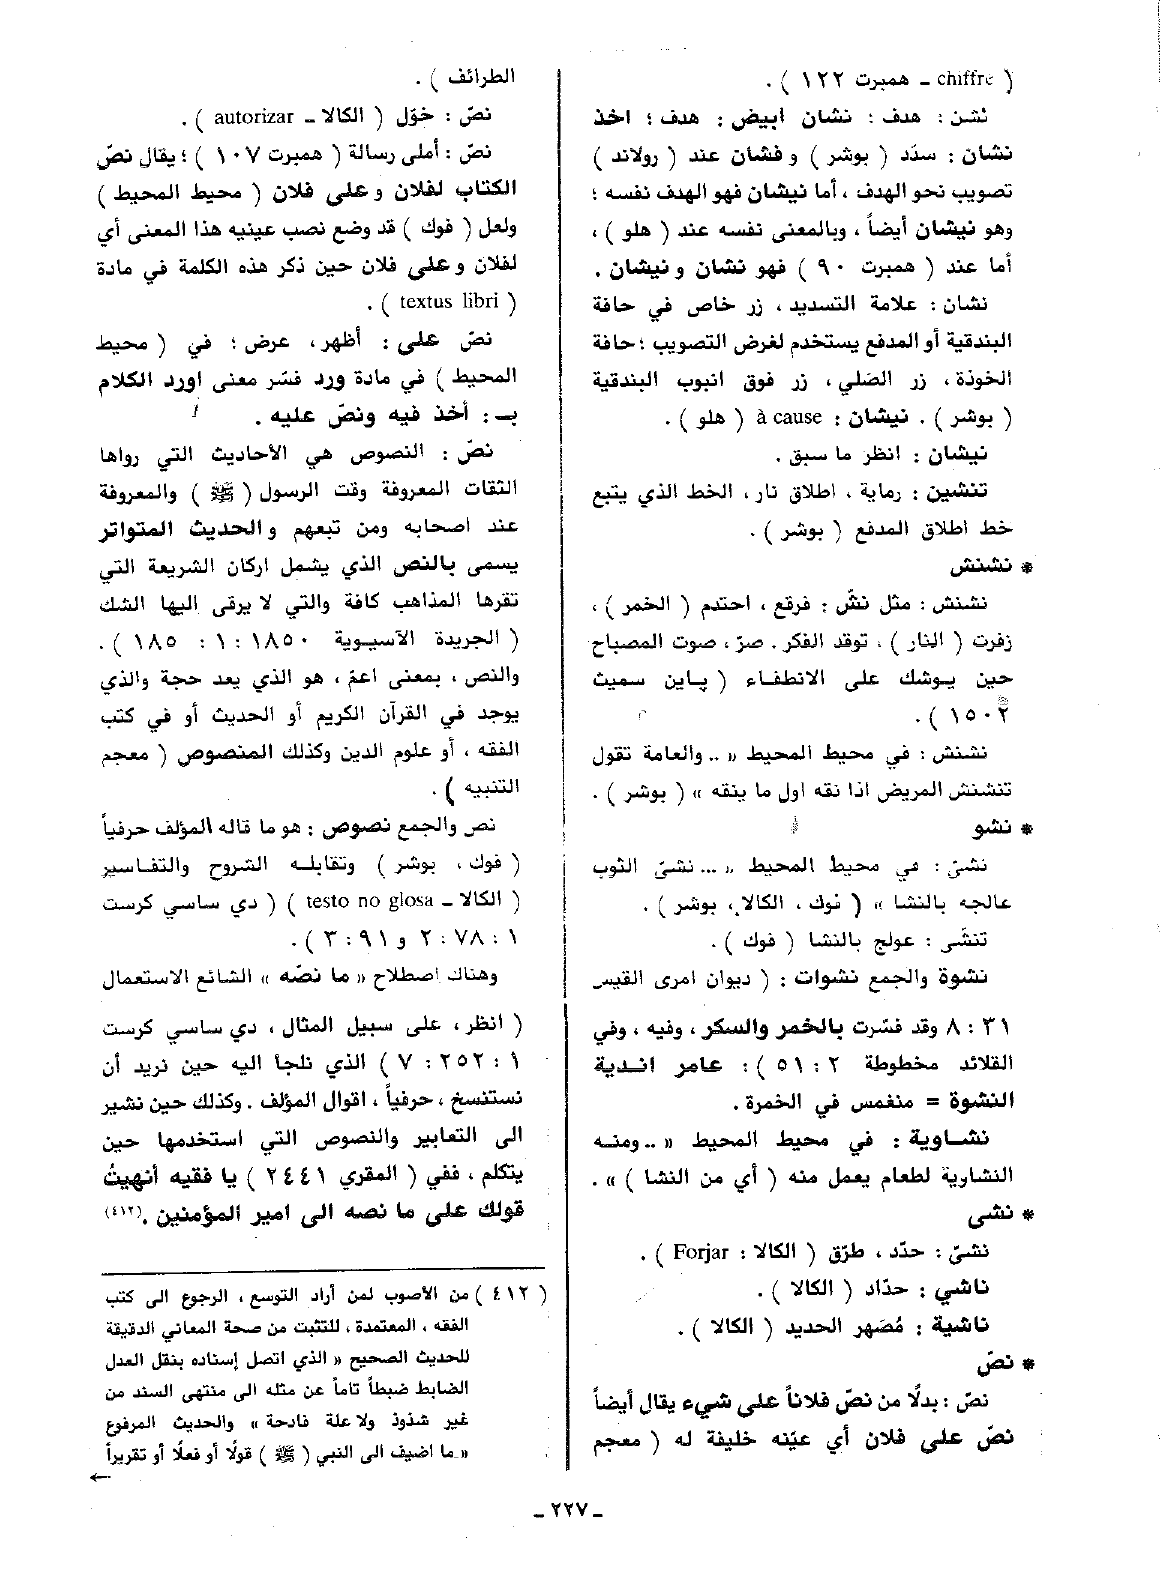 ( chiffre ـ همبرت ١٢٢ ) .
نشن : هدف : نشان ابيض : هدف ؛ اخذ
نشان : سدّد ( بوشر ) وفشان عند ( رولاند )
تصويب نحو الهدف ، أما نيشان فهو الهدف نفسه ؛
وهو نيشان أيضاً ، وبالمعنى نفسه عند ( هلو ) ،
أما عند ( همبرت ٩٠ ) فهو نشان ونيشان .
نشان : علامة التسديد ، زر خاص في حافة
البندقية أو المدفع يستخدم لغرض التصويب ؛ حافة
الخوذة ، زر الصَلي ، زر فوق انبوب البندقية
( بوشر ) . نيشان : à cause ( هلو ) .
نيشان : انظر ما سبق .
تنشين : رماية ، اطلاق نار ، الخط الذي يتبع
خط اطلاق المدفع ( بوشر ) .
* نشنش
نشنش : مثل نشّ : فرقع ، احتدم ( الخمر ) ،
زفرت ( النار ) ، توقد الفكر . صرّ ، صوت المصباح
حين يوشك على الانطفاء ( پاين سميث
١٥٠٢ ) .
نشنش : في محيط المحيط « .. والعامة تقول
تنشنش المريض اذا نقه اول ما ينقه » ( بوشر ) .
* نشو
نشىّ : في محيط المحيط « ... نشىّ الثوب
عالجه بالنشا » ( فوك ، الكالا ، بوشر ) .
تنشّى : عولج بالنشا ( فوك ) .
نشوة والجمع نشوات : ( ديوان امرى القيس
٣١ : ٨ وقد فسّرت بالخمر والسكر ، وفيه ، وفي
القلائد مخطوطة ٢ : ٥١ ) : عامر اندية
النشوة = منغمس في الخمرة .
نشاوية : في محيط المحيط « .. ومنه
النشاوية لطعام يعمل منه ( أي من النشا ) » .
* نشى
نشىّ : حدّد ، طرّق ( الكالا : Forjar ) .
ناشي : حدّاد ( الكالا ) .
ناشية : مُصهر الحديد ( الكالا ) .
* نصّ
نصّ : بدلًا من نصّ فلاناً على شيء يقال أيضاً
نصّ على فلان أي عيّنه خليفة له ( معجم
الطرائف ) .
نصّ : خوّل ( الكالا ـ autorizar ) .
نصّ : أملى رسالة ( همبرت ١٠٧ ) ؛ يقال نصّ
الكتاب لفلان وعلى فلان ( محيط المحيط )
ولعل ( فوك ) قد وضع نصب عينيه هذا المعنى أي
لفلان وعلى فلان حين ذكر هذه الكلمة في مادة
( textus libri ) .
نصّ على : أظهر ، عرض ؛ في ( محيط
المحيط ) في مادة ورد فسّر معنى اورد الكلام
بـ : أخذ فيه ونصّ عليه .
نصّ : النصوص هي الأحاديث التي رواها
الثقات المعروفة وقت الرسول ( ﷺ ) والمعروفة
عند اصحابه ومن تبعهم والحديث المتواتر
يسمى بالنص الذي يشمل اركان الشريعة التي
تقرها المذاهب كافة والتي لا يرقى اليها الشك
( الجريدة الآسيوية ١٨٥٠ : ١ : ١٨٥ ) .
والنص ، بمعنى اعم ، هو الذي يعد حجة والذي
يوجد في القرآن الكريم أو الحديث أو في كتب
الفقه ، أو علوم الدين وكذلك المنصوص ( معجم
التنبيه ) .
نص والجمع نصوص : هو ما قاله المؤلف حرفياً
( فوك ، بوشر ) وتقابله الشروح والتفاسير
( الكالا ـ testo no glosa ) ( دي ساسي كرست
١ : ٧٨ : ٢ و ٩١ : ٣ ) .
وهناك اصطلاح « ما نصّه » الشائع الاستعمال
( أنظر ، على سبيل المثال ، دي ساسي كرست
١ : ٢٥٢ : ٧ ) الذي نلجا اليه حين نريد أن
نستنسخ ، حرفياً ، اقوال المؤلف . وكذلك حين نشير
الى التعابير والنصوص التي استخدمها حين
يتكلم ، ففي ( المقري ١ ٢٤٤ ) يا فقيه أنهيتُ
قولك على ما نصه الى امير المؤمنين .(٤١٢)
( ٤١٢ ) من الأصوب لمن أراد التوسع ، الرجوع الى كتب
الفقه ، المعتمدة ، للتثبت من صحة المعاني الدقيقة
للحديث الصحيح « الذي اتصل إسناده بنقل العدل
الضابط ضبطاً تاماً عن مثله الى منتهى السند من
غير شذوذ ولا علة قادحة » والحديث المرفوع
« ما اضيف الى النبي ( ﷺ ) قولًا أو فعلًا أو تقريراً
←
ـ ٢٢٧ ـ